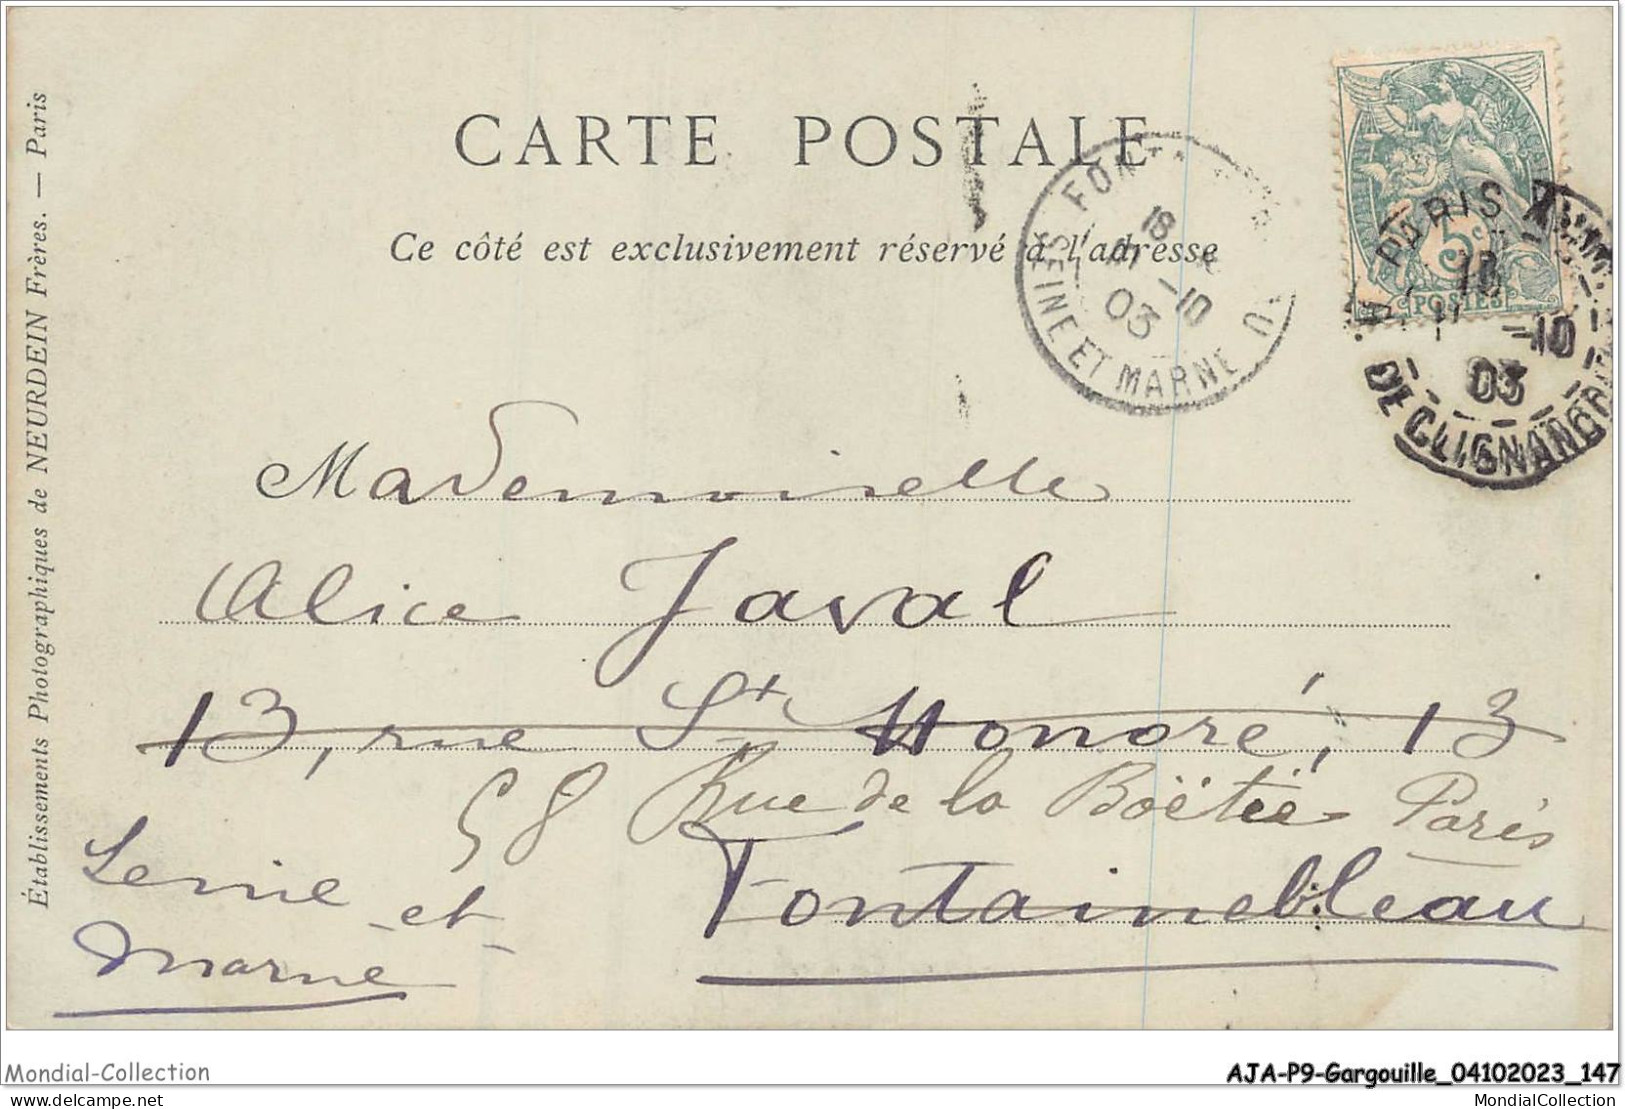 CARTE POSTALE
Ce côté est exclusivement réservé à l'adresse
Établissements Photographiques de NEURDEIN Frères. — Paris
5c
POSTES
PARIS
18
-10
03
DE CLIGNANCO
18
-10
03
SEINE ET MARNE
Mademoiselle
Alice Javal
13, rue St Honoré, 13
58 Rue de la Boëtie Paris
Fontainebleau
Seine
-et-
Marne
Mondial-Collection
AJA-P9-Gargouille_04102023_147
mondial-collection.com
MondialCollection